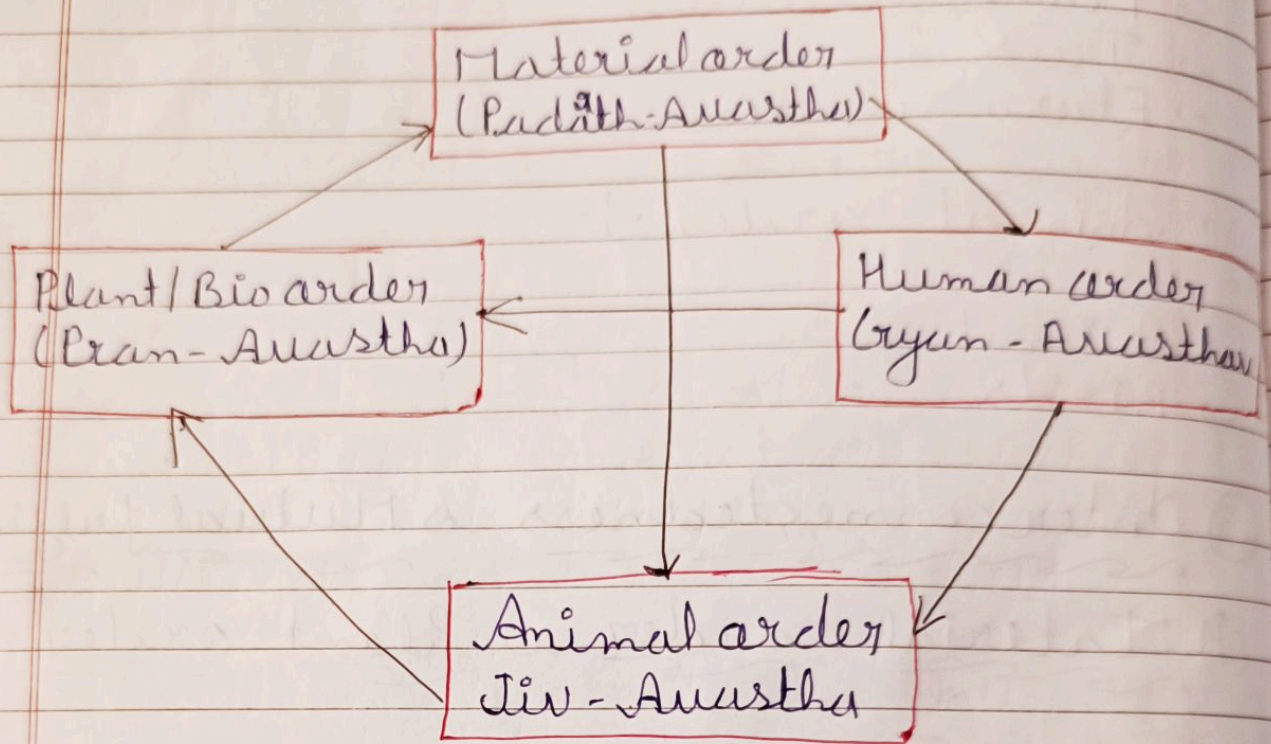 Material order
(Padarth-Avastha)
Plant/Bio order
(Pran-Avastha)
Human order
Gyan-Avastha
Animal order
Jiv-Avastha